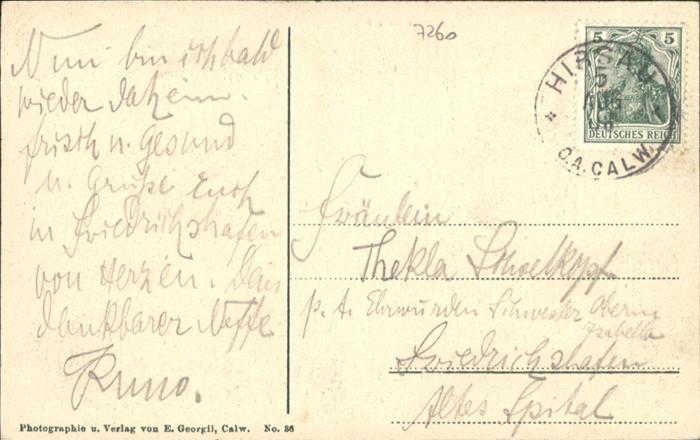 Nun bin ich bald
wieder daheim.
frisch u. Gesund
u. Grüße Euch
in Friedrichshafen
von Herzen. Dein
dankbarer Neffe
Kuno.
7260
5 5
DEUTSCHES REICH
HIRSAU
5
AUG
O.A. CALW.
Fräulein
Thekla Schoelkopf
p. A. Ehrwürden Schwester Oberin
Isabella
Friedrichshafen
Altes Spital
Photographie u. Verlag von E. Georgii, Calw. No. 86